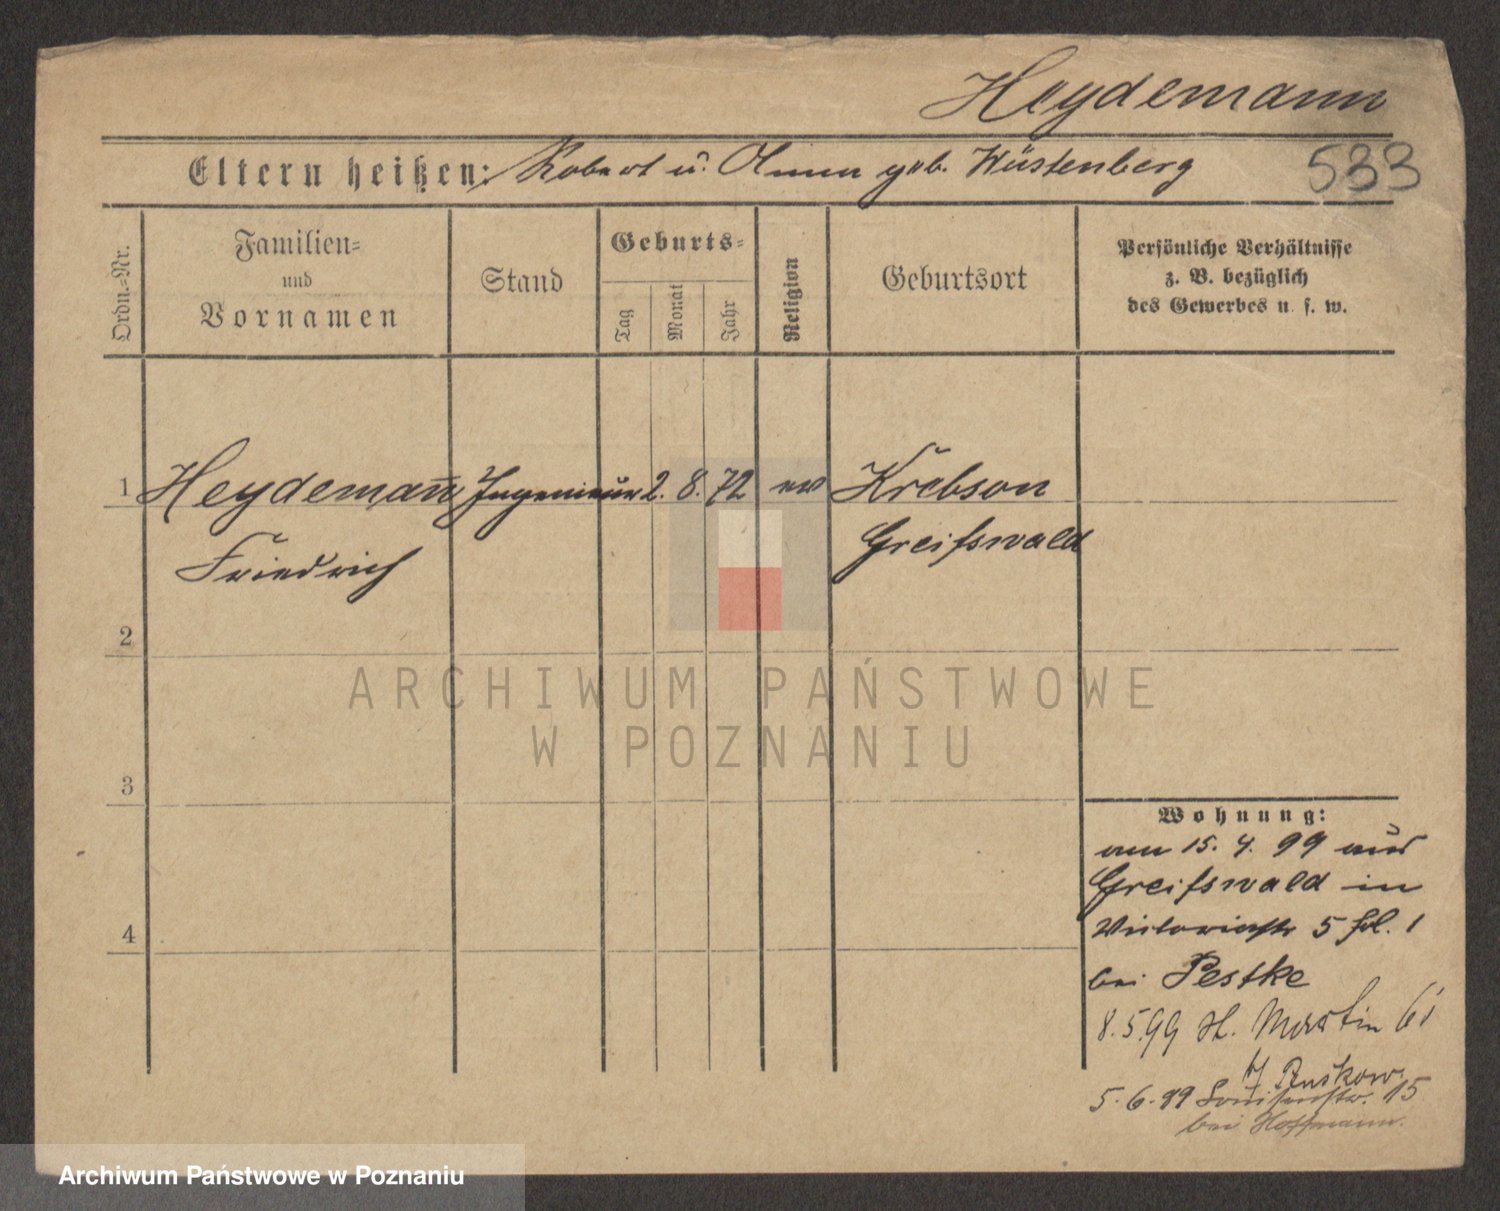 Heydemann
Eltern heißen: Robert u. Anna geb. Wüstenberg
533
Ordn.-Nr.
Familien- und Vornamen
Stand
Geburts-
Tag
Monat
Jahr
Religion
Geburtsort
Persönliche Verhältnisse
z. B. bezüglich
des Gewerbes u. s. w.
1 Heydemann Ingenieur 2. 8. 72 ev Krebsow
Friedrich Greifswald
2
ARCHIWUM PAŃSTWOWE
W POZNANIU
3
4
Wohnung:
am 15. 4. 99 aus
Greifswald in
Victoriastr 5 1
bei Pestke
8.5.99 St. Martin 61
b/ Ruskow.
5.6.99 Louisenstr. 15
bei Hoffmann.
Archiwum Państwowe w Poznaniu